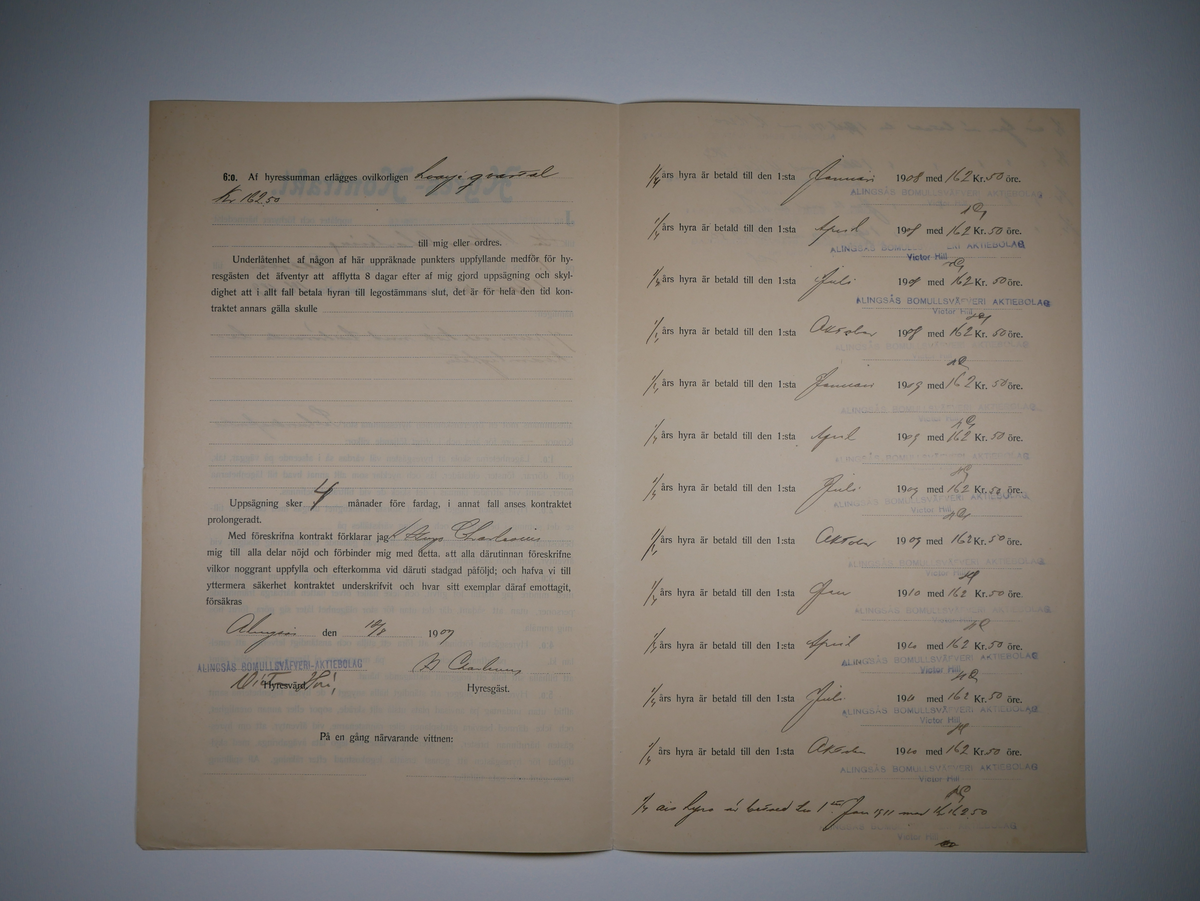 6:o. Af hyressumman erlägges ovilkorligen hvarje qvartal
Kr 162.50
till mig eller ordres.
Underlåtenhet af någon af här uppräknade punkters uppfyllande medför för hy-
resgästen det äfventyr att afflytta 8 dagar efter af mig gjord uppsägning och skyl-
dighet att i allt fall betala hyran till legostämmans slut, det är för hela den tid kon-
traktet annars gälla skulle
Uppsägning sker 4 månader före fardag, i annat fall anses kontraktet
prolongeradt.
Med föreskrifna kontrakt förklarar jag Charlevius
mig till alla delar nöjd och förbinder mig med detta. att alla därutinnan föreskrifne
vilkor noggrant uppfylla och efterkomma vid däruti stadgad påföljd; och hafva vi till
yttermera säkerhet kontraktet underskrifvit och hvar sitt exemplar däraf emottagit,
försäkras
Alingsås den 1907
ALINGSÅS BOMULLSVÄFVERI-AKTIEBOLAG
Hyresvärd.
Hyresgäst.
På en gång närvarande vittnen:
1/4 års hyra är betald till den 1:sta Januari 1908 med 162 Kr. 50 öre.
ALINGSÅS BOMULLSVÄFVERI AKTIEBOLAG
1/4 års hyra är betald till den 1:sta April 1908 med 162 Kr. 50 öre.
ALINGSÅS BOMULLSVÄFVERI AKTIEBOLAG
Victor Hill
1/4 års hyra är betald till den 1:sta Juli 1908 med 162 Kr. 50 öre.
ALINGSÅS BOMULLSVÄFVERI AKTIEBOLAG
Victor Hill
1/4 års hyra är betald till den 1:sta Oktober 1908 med 162 Kr. 50 öre.
ALINGSÅS BOMULLSVÄFVERI AKTIEBOLAG
1/4 års hyra är betald till den 1:sta Januari 1909 med 162 Kr. 50 öre.
ALINGSÅS BOMULLSVÄFVERI AKTIEBOLAG
Victor Hill
1/4 års hyra är betald till den 1:sta April 1909 med 162 Kr. 50 öre.
ALINGSÅS BOMULLSVÄFVERI AKTIEBOLAG
1/4 års hyra är betald till den 1:sta Juli 1909 med 162 Kr. 50 öre.
ALINGSÅS BOMULLSVÄFVERI AKTIEBOLAG
Victor Hill
1/4 års hyra är betald till den 1:sta Oktober 1909 med 162 Kr. 50 öre.
ALINGSÅS BOMULLSVÄFVERI AKTIEBOLAG
Victor Hill
1/4 års hyra är betald till den 1:sta Jan 1910 med 162 Kr. 50 öre.
ALINGSÅS BOMULLSVÄFVERI AKTIEBOLAG
1/4 års hyra är betald till den 1:sta April 1910 med 162 Kr. 50 öre.
ALINGSÅS BOMULLSVÄFVERI AKTIEBOLAG
Victor Hill
1/4 års hyra är betald till den 1:sta Juli 1910 med 162 Kr. 50 öre.
ALINGSÅS BOMULLSVÄFVERI AKTIEBOLAG
Victor Hill
1/4 års hyra är betald till den 1:sta Oktober 1910 med 162 Kr. 50 öre.
ALINGSÅS BOMULLSVÄFVERI AKTIEBOLAG
Victor Hill
1/4 års hyra är betald till 1sta Jan 1911 med Kr 162.50
ALINGSÅS BOMULLSVÄFVERI AKTIEBOLAG
Victor Hill